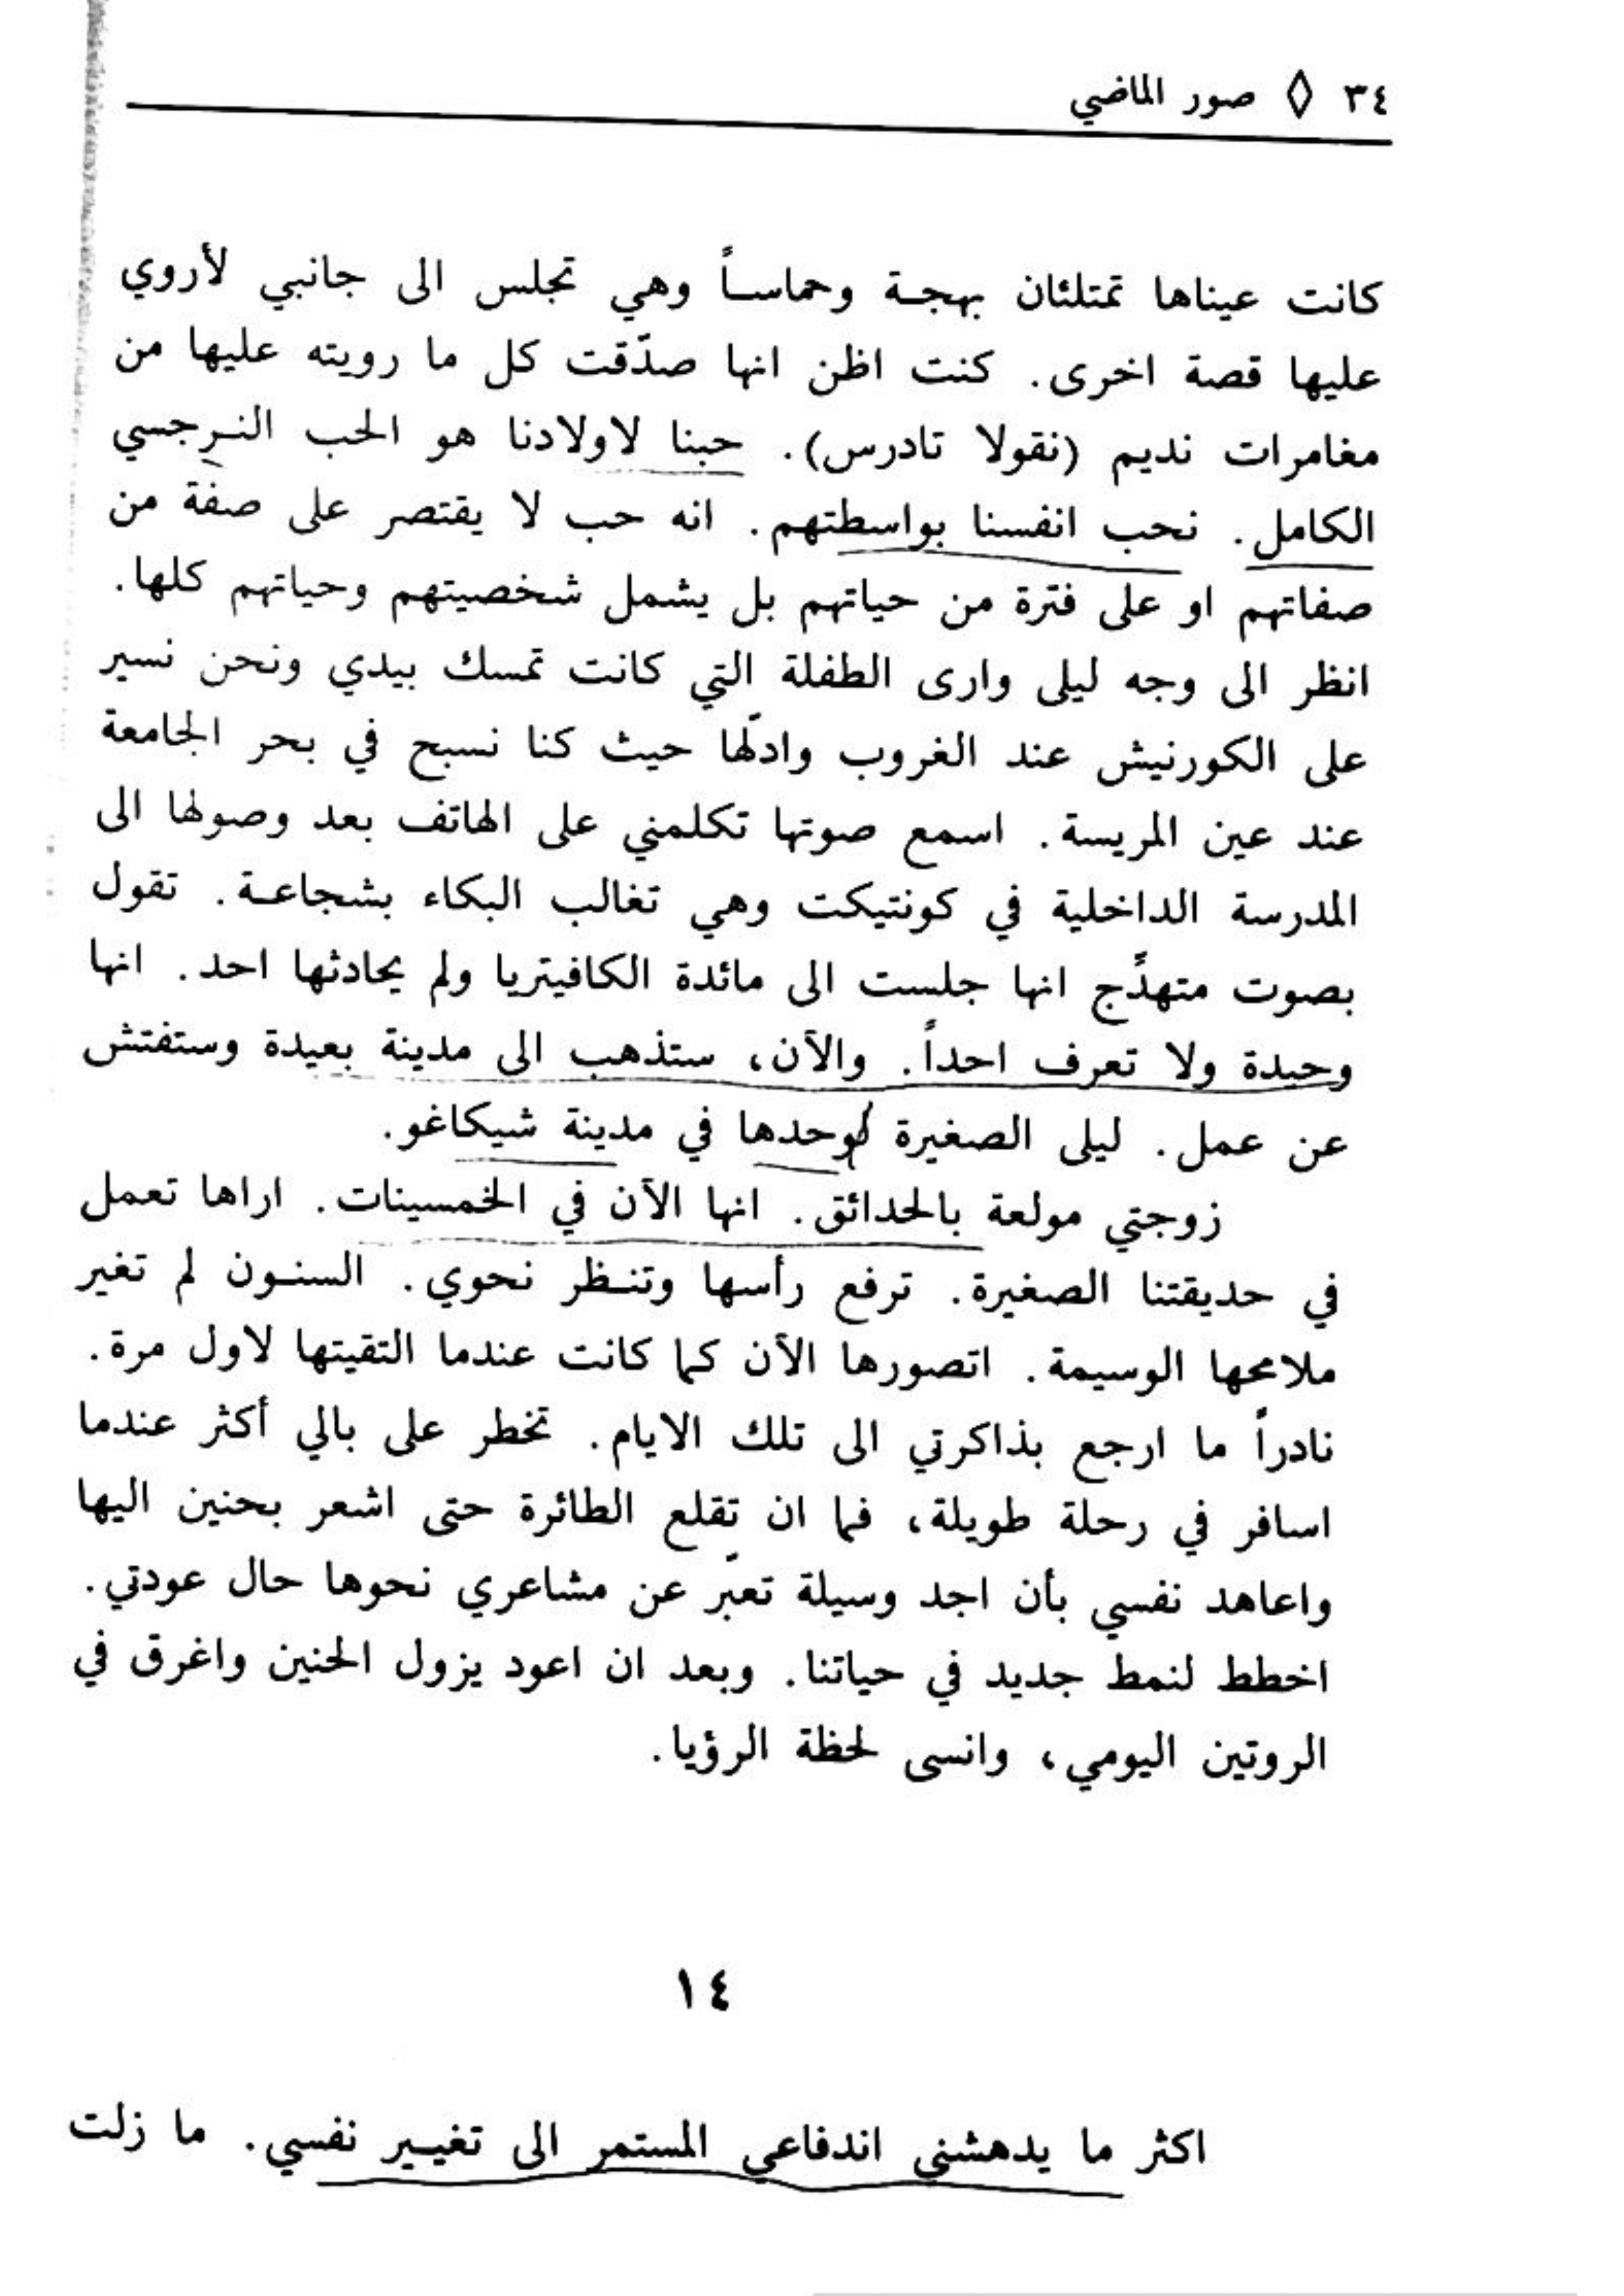 ٣٤ ◊ صور الماضي
كانت عيناها تمتلئان بهجة وحماساً وهي تجلس الى جانبي لأروي
عليها قصة اخرى. كنت اظن انها صدّقت كل ما رويته عليها من
مغامرات نديم (نقولا تادرس). حبنا لاولادنا هو الحب النرجسي
الكامل. نحب انفسنا بواسطتهم. انه حب لا يقتصر على صفة من
صفاتهم او على فترة من حياتهم بل يشمل شخصيتهم وحياتهم كلها.
انظر الى وجه ليلى وارى الطفلة التي كانت تمسك بيدي ونحن نسير
على الكورنيش عند الغروب وادلّها حيث كنا نسبح في بحر الجامعة
عند عين المريسة. اسمع صوتها تكلمني على الهاتف بعد وصولها الى
المدرسة الداخلية في كونتيكت وهي تغالب البكاء بشجاعة. تقول
بصوت متهدّج انها جلست الى مائدة الكافيتريا ولم يحادثها احد. انها
وحيدة ولا تعرف احداً. والآن، ستذهب الى مدينة بعيدة وستفتش
عن عمل. ليلى الصغيرة لوحدها في مدينة شيكاغو.
زوجتي مولعة بالحدائق. انها الآن في الخمسينات. اراها تعمل
في حديقتنا الصغيرة. ترفع رأسها وتنظر نحوي. السنون لم تغير
ملامحها الوسيمة. اتصورها الآن كما كانت عندما التقيتها لاول مرة.
نادراً ما ارجع بذاكرتي الى تلك الايام. تخطر على بالي أكثر عندما
اسافر في رحلة طويلة، فما ان تقلع الطائرة حتى اشعر بحنين اليها
واعاهد نفسي بأن اجد وسيلة تعبّر عن مشاعري نحوها حال عودتي.
اخطط لنمط جديد في حياتنا. وبعد ان اعود يزول الحنين واغرق في
الروتين اليومي، وانسى لحظة الرؤيا.
١٤
اكثر ما يدهشني اندفاعي المستمر الى تغيير نفسي. ما زلت